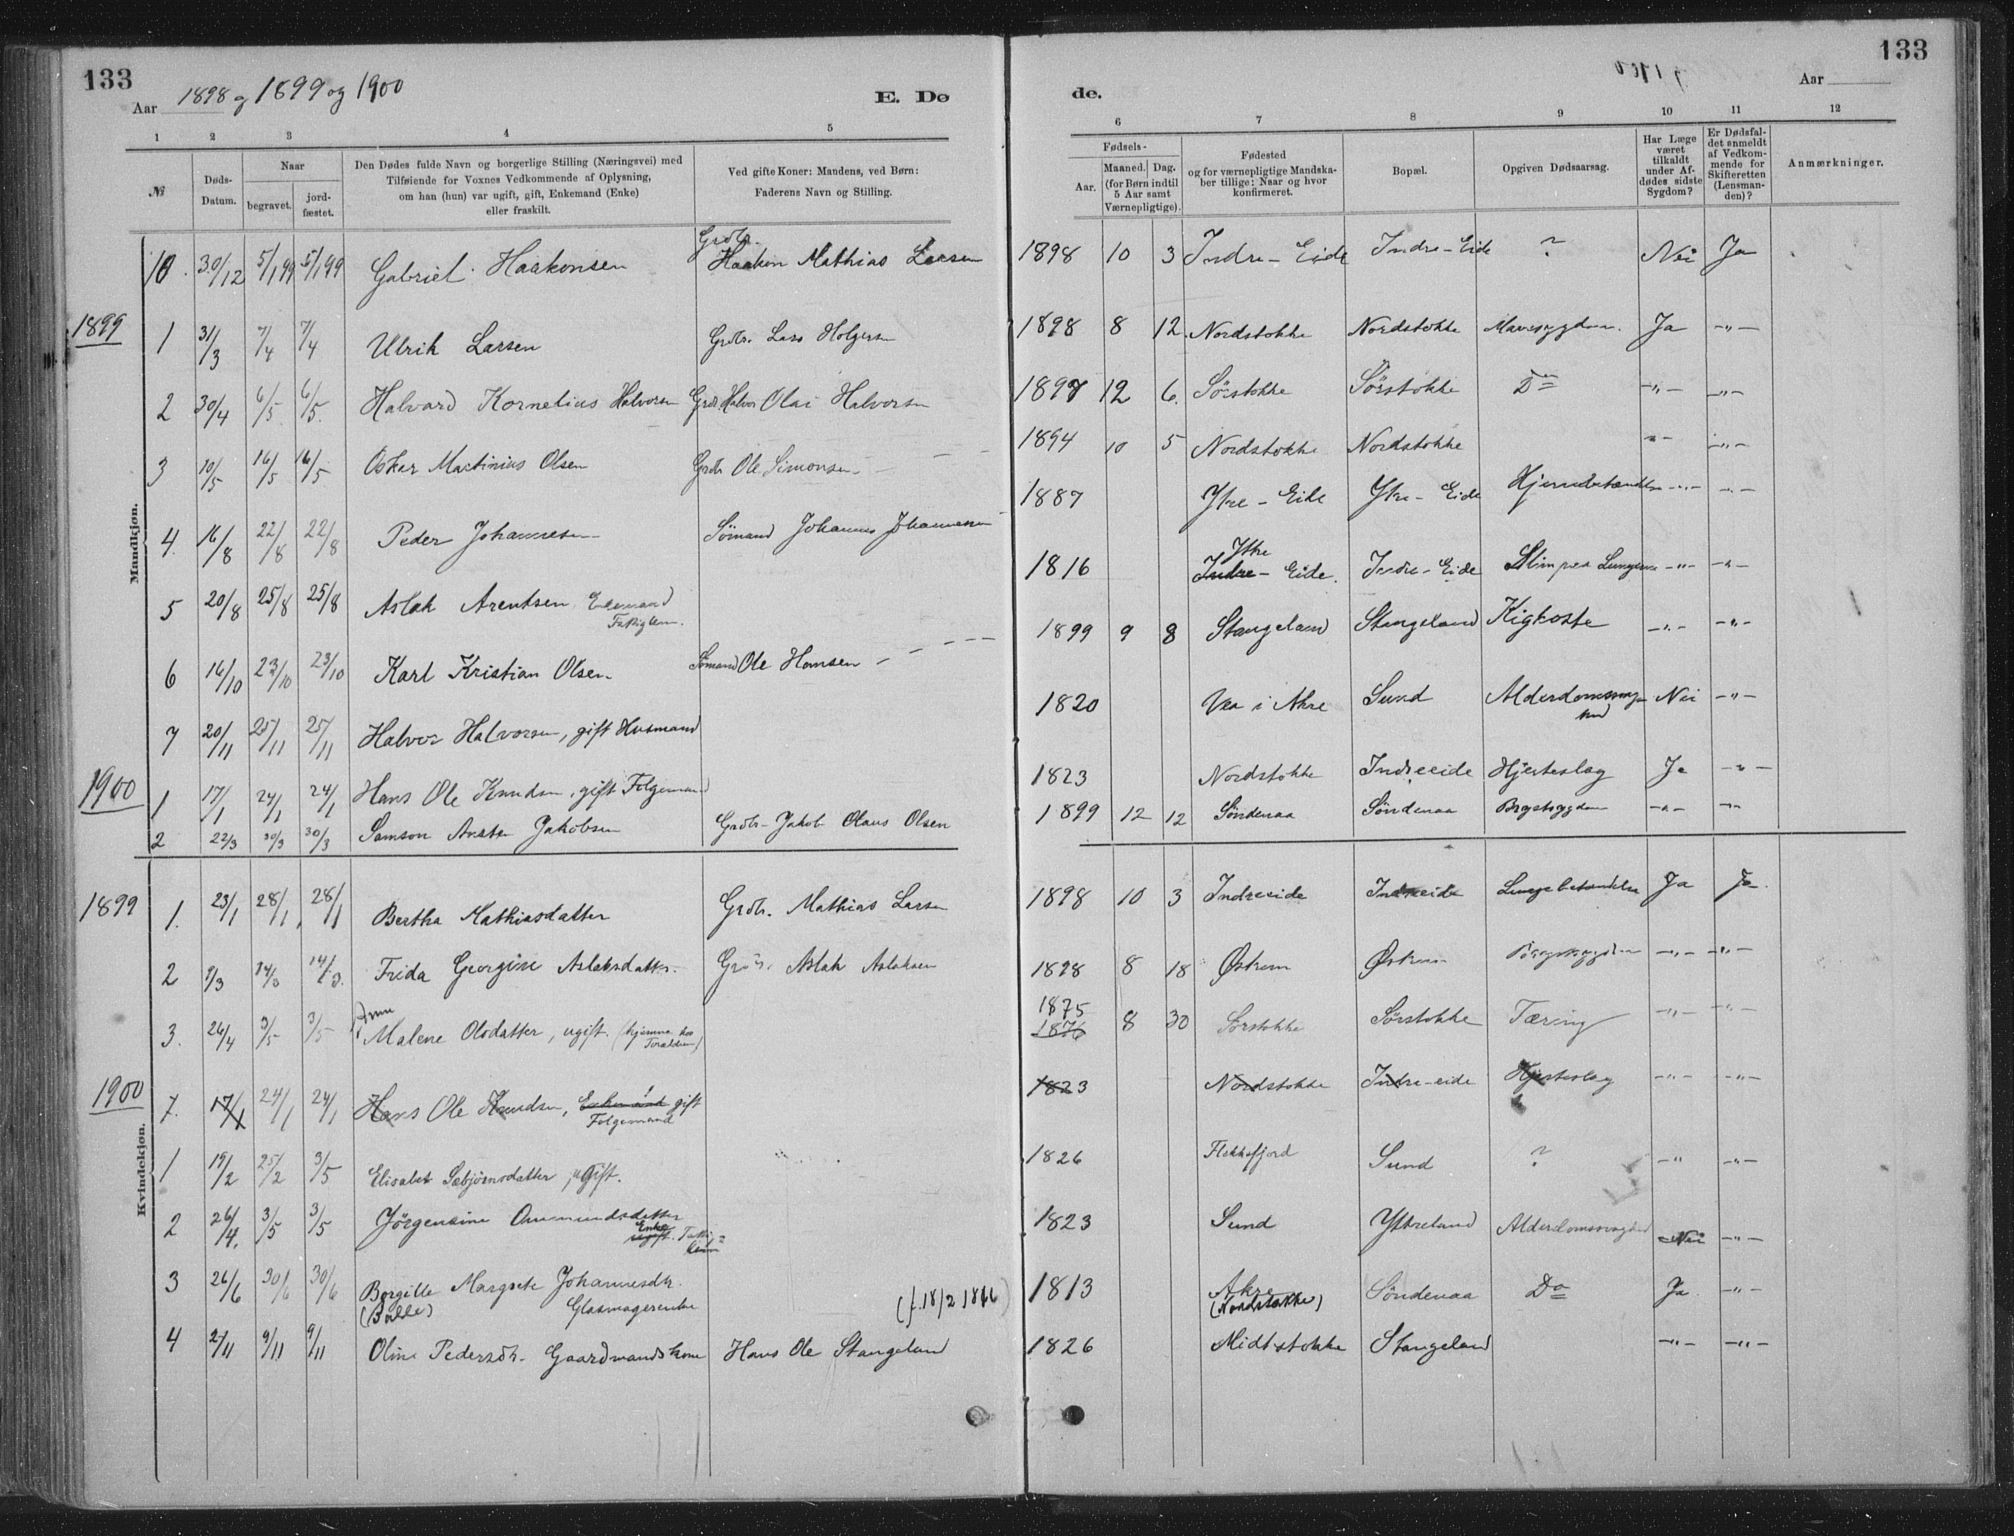 133
Aar 1898 og 1899 og 1900
E. Dø
de.
133
Aar
1 2 3 4 5
6 7 8 9 10 11 12
№
Døds-Datum.
Naar
begravet.
jordfæstet.
Den Dødes fulde Navn og borgerlige Stilling (Næringsvei) med
Tilføiende for Voxnes Vedkommende af Oplysning,
om han (hun) var ugift, gift, Enkemand (Enke)
eller fraskilt.
Ved gifte Koner: Mandens, ved Børn:
Faderens Navn og Stilling.
Fødsels-
Aar.
Maaned. Dag.
(for Børn indtil
5 Aar samt
Værnepligtige).
Fødested
og for værnepligtige Mandska-
ber tillige: Naar og hvor
konfirmeret.
Bopæl.
Opgiven Dødsaarsag.
Har Læge
været
tilkaldt
under Af-
dødes sidste
Sygdom?
Er Dødsfal-
det anmeldt
af Vedkom-
mende for
Skifteretten
(Lensman-
den)?
Anmærkninger.
Mandkjøn.
10. 30/12 5/1 99 5/1 99 Gabriel Haakonsen Grdbr. Haakon Mathias Larsen 1898 10 3 Indre-Eide Indre-Eide ? Nei Ja
1899
1 31/3 7/4 7/4 Ulrik Larsen Grdbr. Lars Holgersen 1898 8 12. Nordstokke Nordstokke Mavesygdom. Ja -"-
2 30/4 6/5 6/5 Halvard Kornelius Halvorsen Grdbr. Halvor Olai Halvorsen 1897 12 6. Sörstokke Sörstokke Do -"- -"-
3 10/5 16/5 16/5 Oskar Martinius Olsen Grdbr Ole Simonsen 1894 10 5 Nordstokke Nordstokke -"- -"-
4. 16/8 22/8 22/8 Peder Johannesen Sömand Johannes Johannesen 1887 Ytre-Eide Ytre-Eide Hjernebetændelse -"- -"-
5 20/8 25/8 25/8 Aslak Arentsen, Enkemand Fattiglem. 1816 Ytre Indre-Eide. Indre-Eide Slim paa Lungerne -"- -"-
6 16/10 23/10 23/10 Karl Kristian Olsen Sömand Ole Hansen 1899 9 8 Stangeland Stangeland Kighoste -"- -"-
7 20/11 25/11 25/11 Halvor Halvorsen, gift Husmand 1820 Vea i Akre Sund Alderdomssvaghed Nei -"-
1900
1 17/1 24/1 24/1 Hans Ole Knudsen, gift Folgemand 1823 Nordstokke Indreeide Hjerteslag Ja -"-
2 22/3 30/3 30/3 Samson Jakobsen Grdbr-Jakob Olaus Olsen 1899 12 12 Söndenaa Söndenaa Brystsygdom -"- -"-
Kvindekjøn.
1899
1. 23/1 28/1 28/1 Bertha Mathiasdatter Grdbr. Mathias Larsen 1898 10 3 Indreeide Indreeide Lungebetændelse Ja Ja.
2 9/3 14/3 14/3. Frida Georgine Aslaksdatter Grdbr. Aslak Aslaksen 1898 8 18 Østrem Østrem Brystsygdom -"- -"-
3. 26/4 3/5 3/5 Anna Malene Olsdatter, ugift. (hjemme hos Forældrene) 1875 1876 8 30 Sörstokke Sörstokke Tæring -"- -"-
1900
7. 17/1 24/1 24/1 Hans Ole Knudsen, Enkemand gift Folgemand 1823 Nordstokke Indre-eide Hjerteslag -"- -"-
1 19/2 25/2 3/5 Elisabet Sebjörnsdatter, ugift. 1826 Flekkefjord Sund ? -"- -"-
2 26/4. 3/5 3/5 Jörgensine Ommundsdatter Enke ugift. 1823 Sund Ytreland Alderdomssvaghed Nei -"-
3 26/6 30/6 30/6 Borgille Margrete Johannesdtr. (Bolle) Glasmagerenke 1813 Akre (Nordstokke) Söndenaa Do Ja. -"-
4 2/11 9/11 9/11 Oline Pedersdtr. Gaardmandskone Hans Ole Stangeland 1826 Midtstokke Stangeland -"- -"-